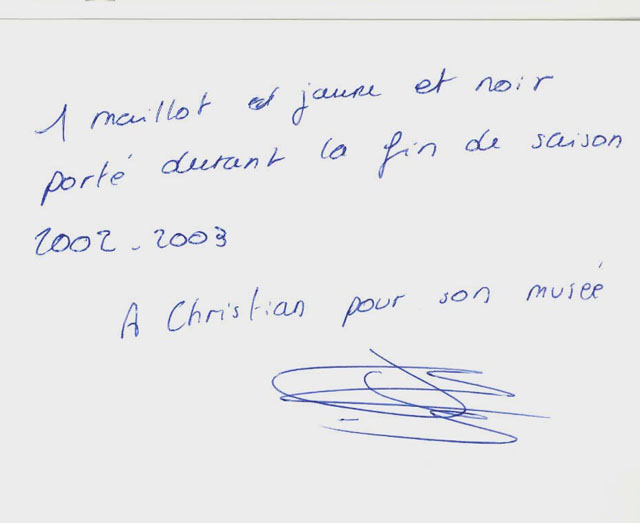 1 maillot jaune et noir
porté durant la fin de saison
2002-2003
A Christian pour son musée